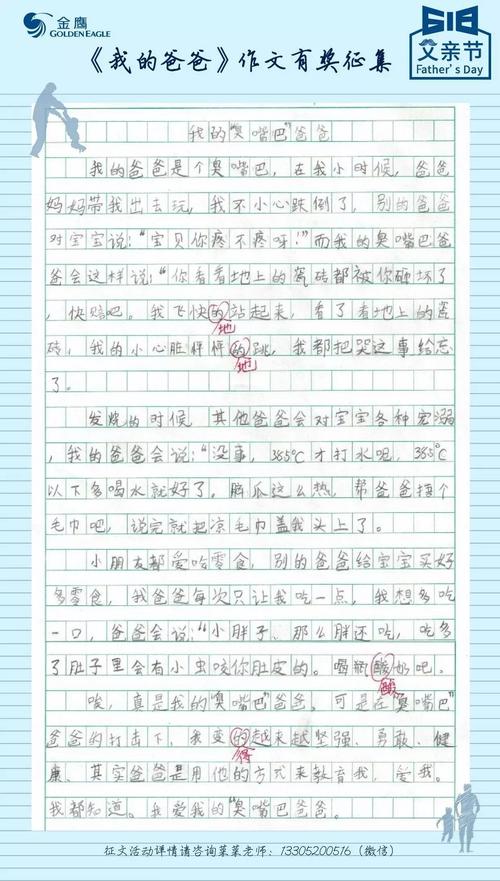 金鹰
GOLDEN EAGLE
618
父亲节
Father's Day
《我的爸爸》作文有奖征集
我的"臭嘴巴"爸爸
我的爸爸是个臭嘴巴,在我小时候,爸爸
妈妈带我出去玩,我不小心跌倒了,别的爸爸
对宝宝说:"宝贝你疼不疼呀!"而我的臭嘴巴爸
爸会这样说:"你看看地上的瓷砖都被你砸坏了
,快赔吧。我飞快的站起来,看了看地上的瓷
地
砖,我的小心脏怦怦的跳,我都把哭这事给忘
地
了。
发烧的时候,其他爸爸会对宝宝各种宠溺
,我的爸爸会说:"没事,385℃才打水呢,385℃
以下多喝水就好了。脑瓜这么热,帮爸爸捂个
毛巾吧,说完就把凉毛巾盖我头上了。
小朋友都爱吃零食,别的爸爸给宝宝买好
多零食,我爸爸每次只让我吃一点,我想多吃
一口,爸爸会说:"小胖子、那么胖还吃,吃多
了肚子里会有小虫咬你肚皮的。喝瓶酸奶吧。
酸
唉,真是我的"臭嘴巴"爸爸。可是在"臭嘴巴"
爸爸的打击下,我变的越来越坚强、勇敢、健
得
康、其实爸爸是用他的方式来教育我,爱我。
我都知道。我爱我的"臭嘴巴爸爸。
征文活动详情请咨询菜菜老师:13305200516(微信)